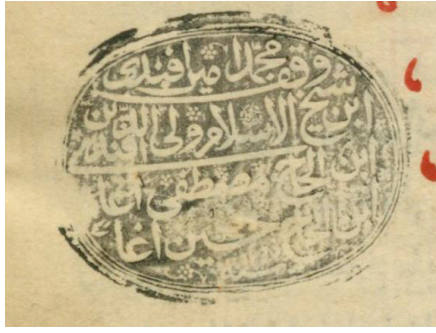 وقف محمد امين افندى
ابن شيخ الاسلام ولى الدين افندى
ابن الحاج مصطفى اغا
ابن الحاج حسين اغا